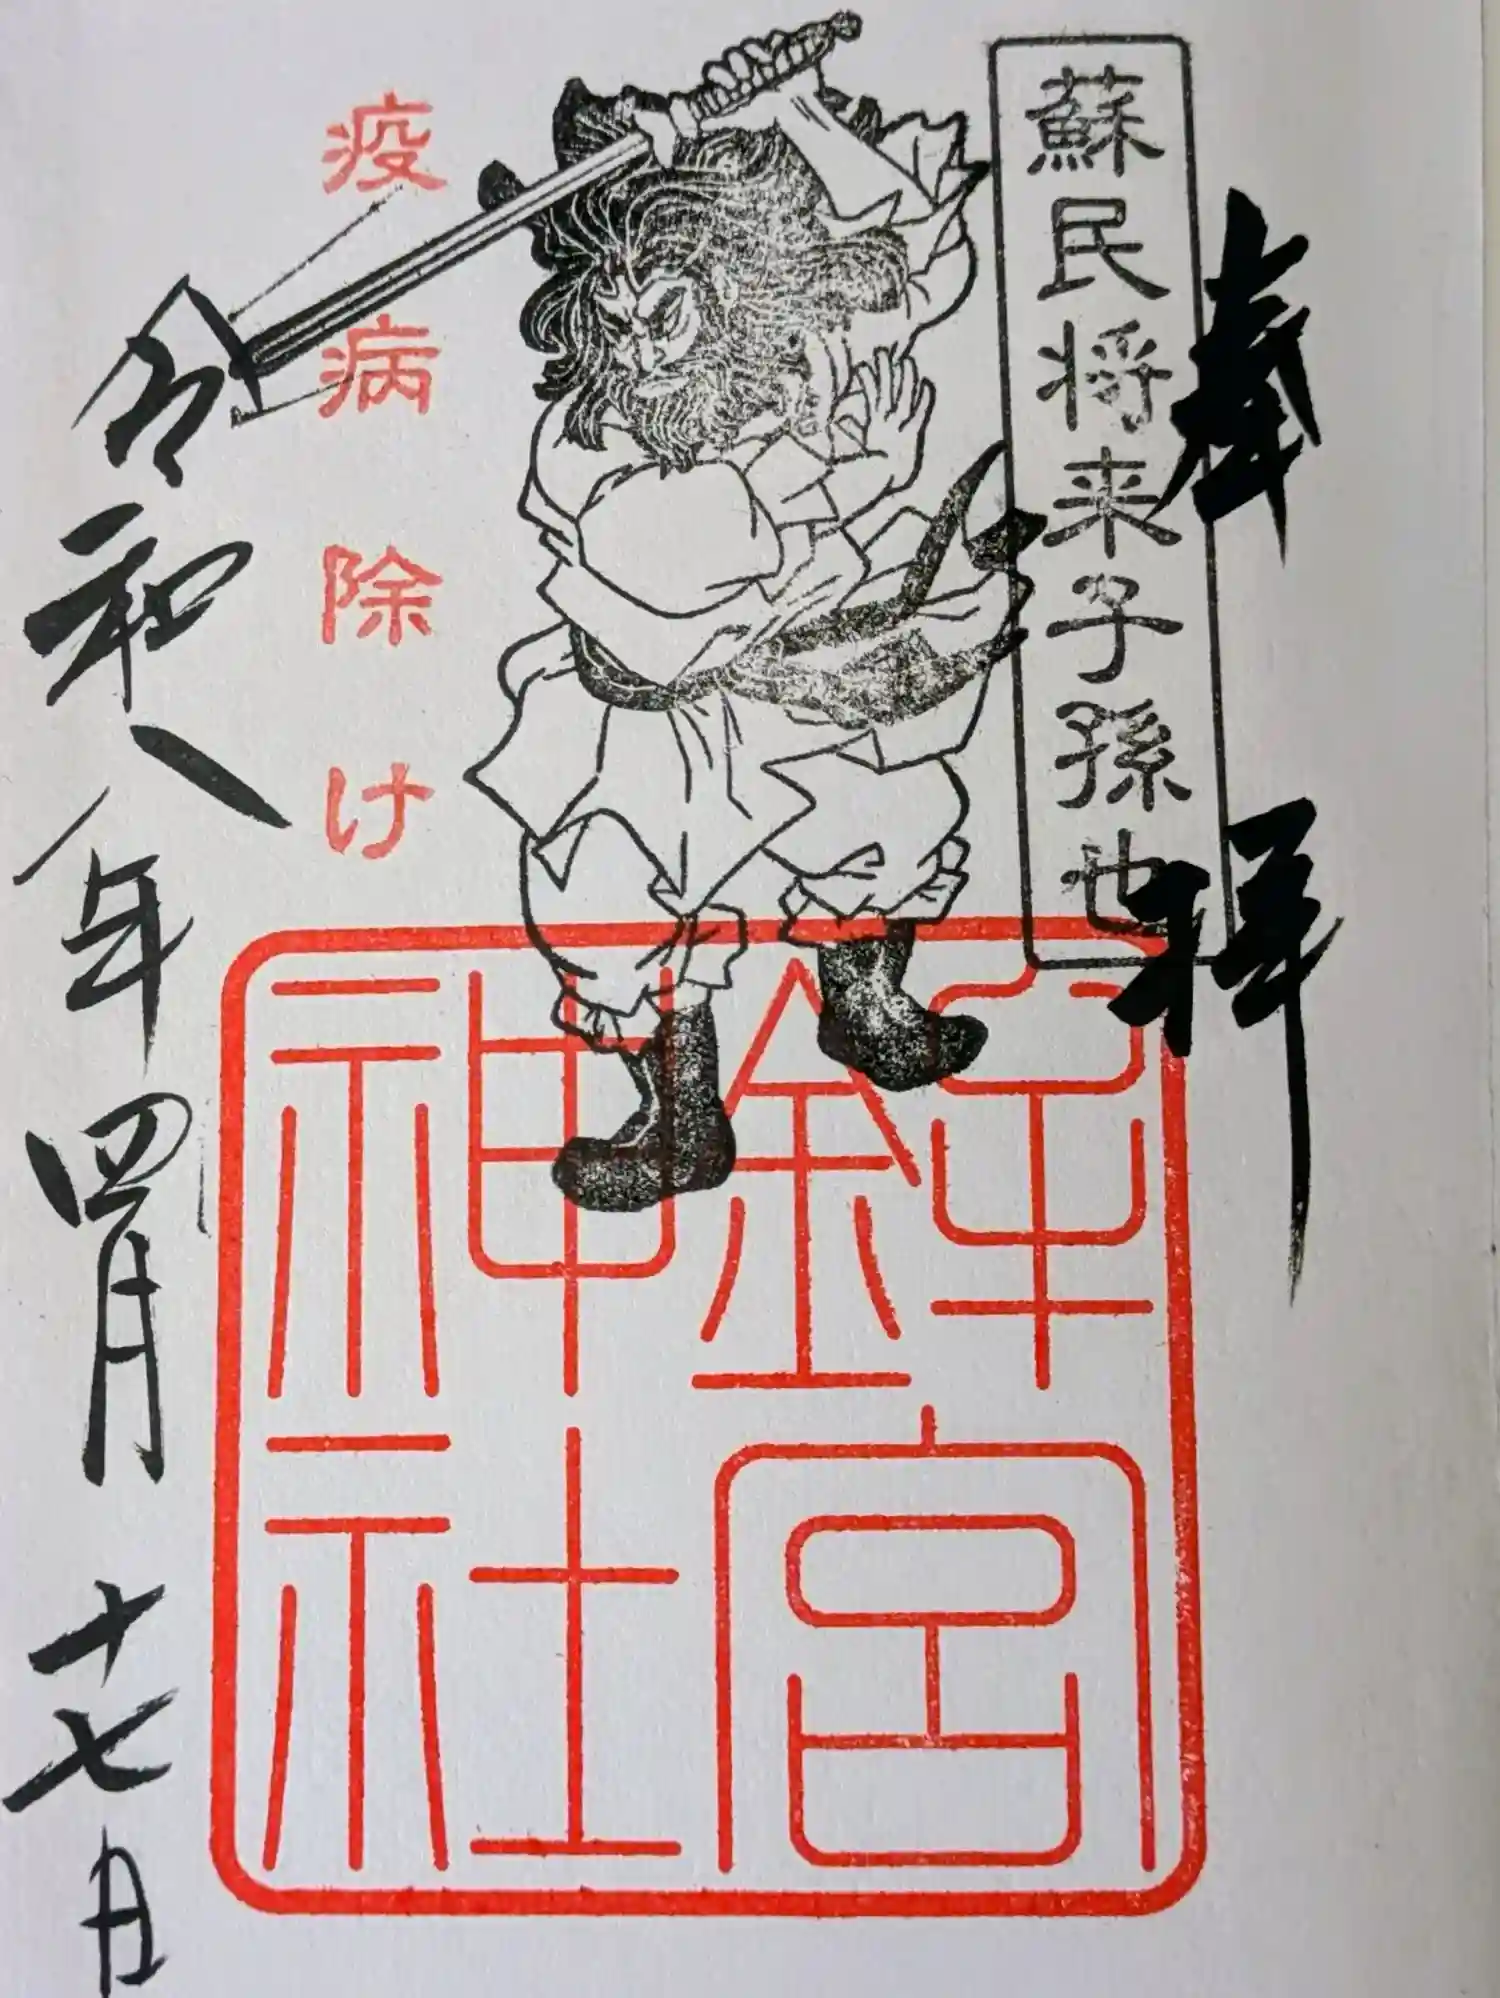 奉拝
蘇民将来子孫也
鉾宮
神社
疫病除け
令和八年四月十七日